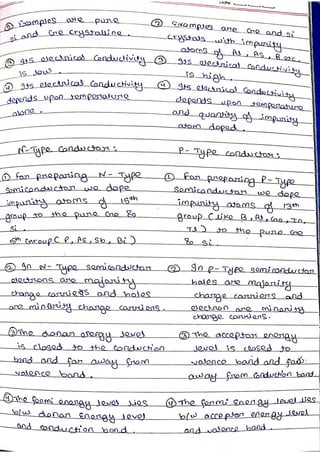 ② Examples are pure
si and Ge crystalline.
③ Its electrical conductivity
is low.
④ Its electrical Conductivity
depends upon temperature
alone.
② Examples are Ge and si
crystals with impurity
atoms of Al, As, B etc.
③ Its electrical conductivity
is high.
④ Its electrical Conductivity
depends upon temperature
and quantity of impurity
atom doped.
N-Type Conductor:
P-Type conductor:
① For preparing N-Type
semiconductor we dope
impurity atoms of 15th
group to the pure Ge so
Si.
15th Group ( P, As, Sb, Bi )
① For preparing P-Type
Semiconductor we dope
impurity atoms of 13th
group ( like B, Al, Ga, In,
Tl ) to the pure Ge
so si.
② In N-Type semiconductor
electrons are majority
charge carriers and holes
are minority charge carriers.
② In p-Type semiconductor
holes are majority
charge carriers and
electron are minority
charge carriers.
③ The donar energy level
is closed to the conduction
band and far away from
valence band.
③ The acceptor energy
level is closed to
valence band and far
away from conduction band
④ The formi energy level lies
b/w donar energy level
and conduction band.
④ The formi energy level lies
b/w acceptor energy level
and valence band.